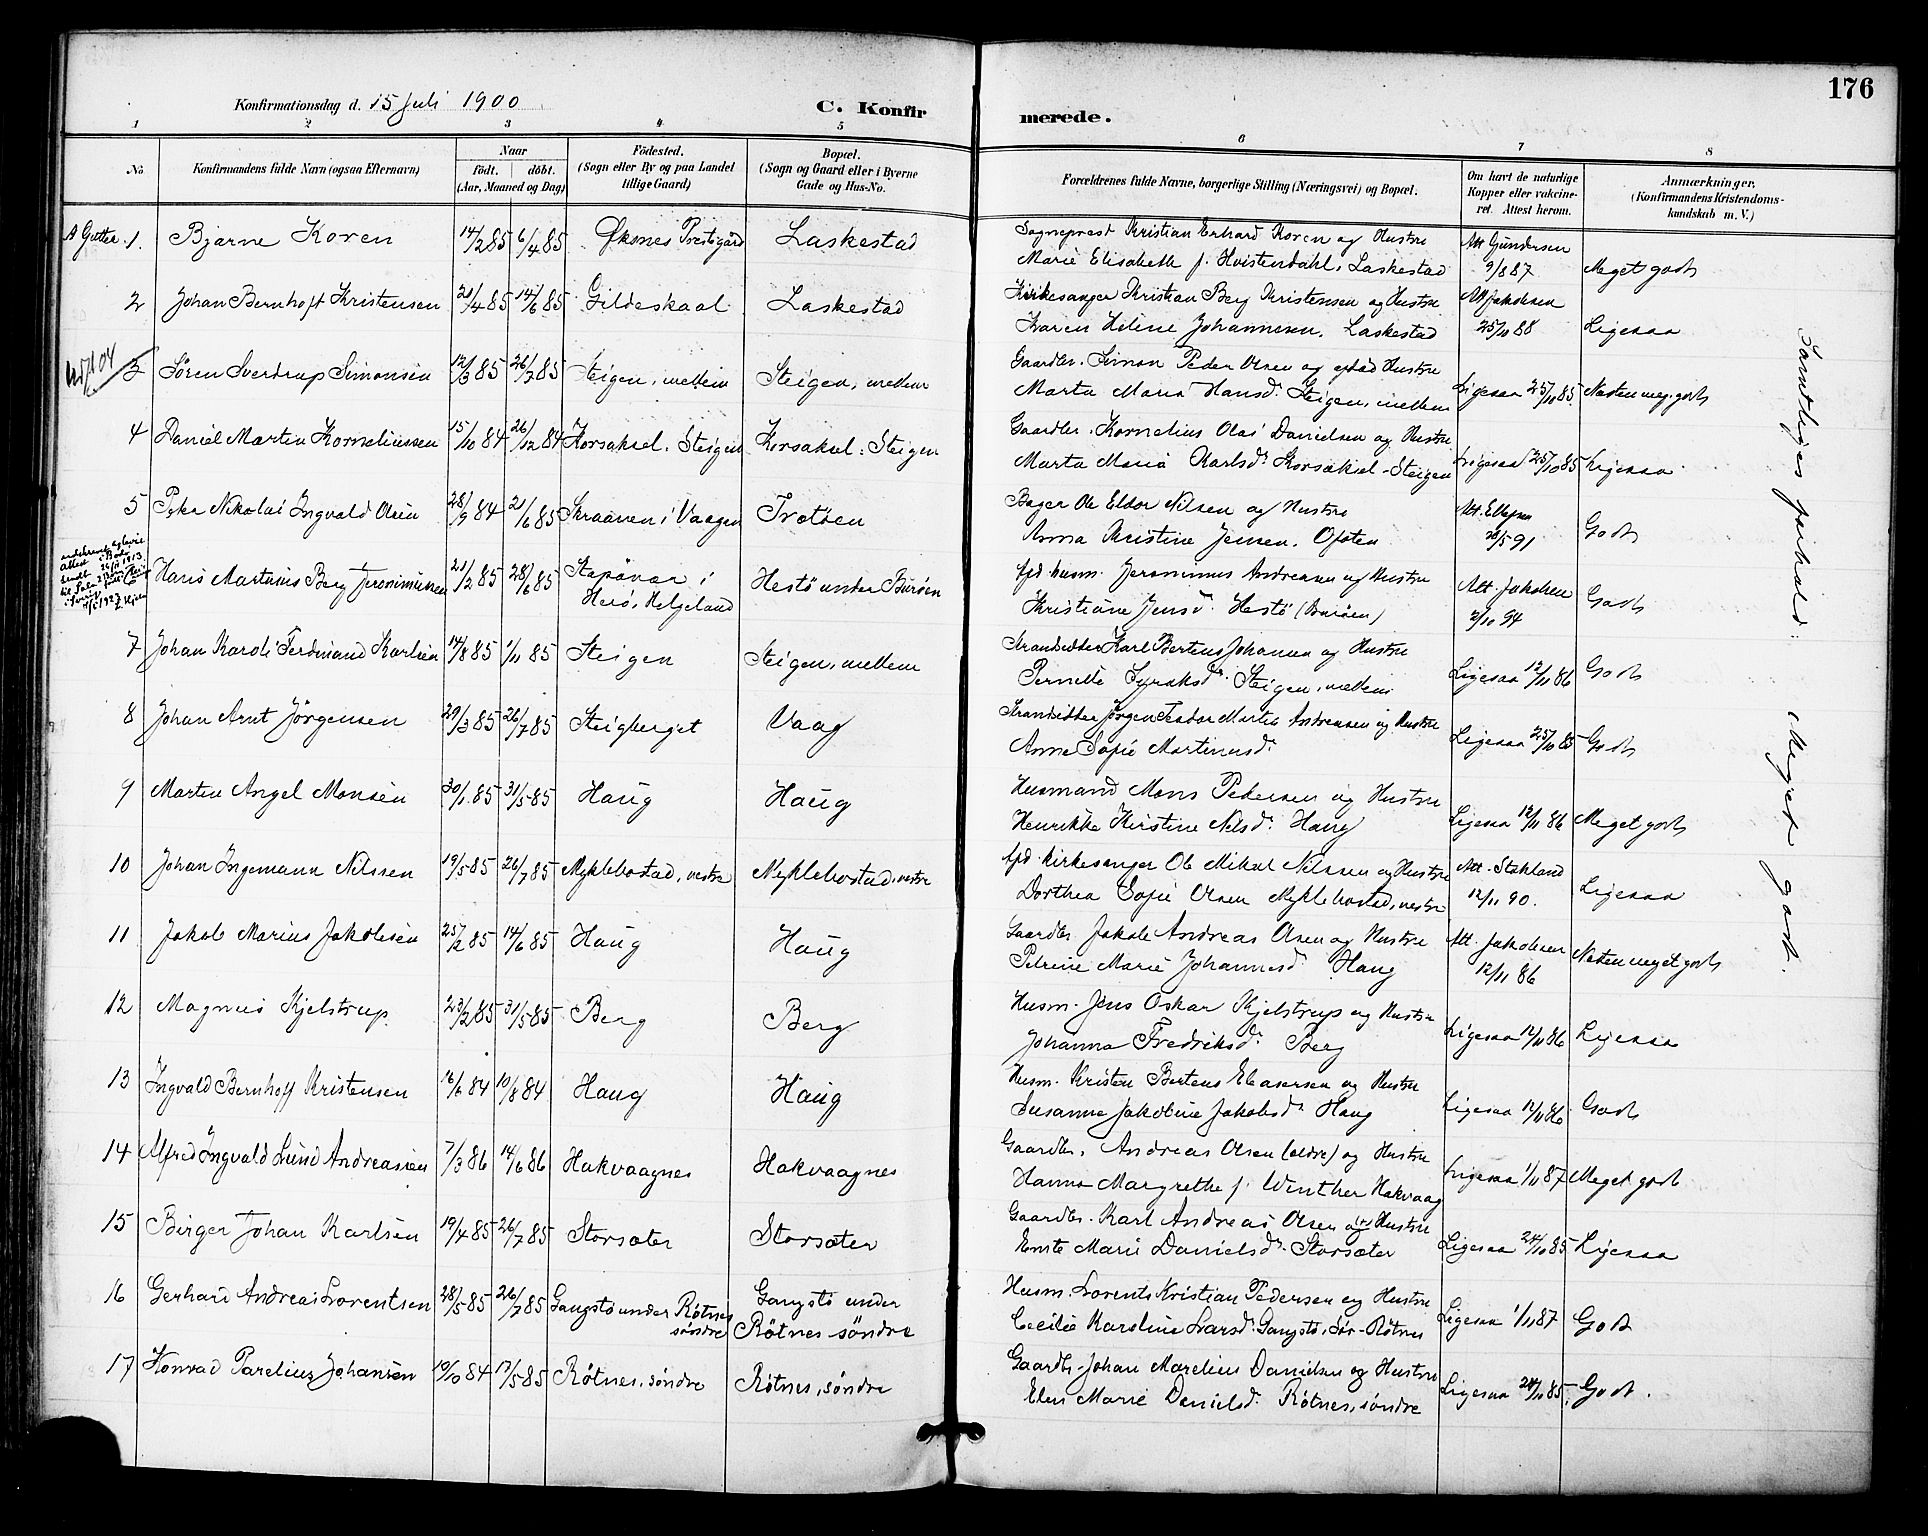 176
Konfirmationsdag d. 15 Juli 1900
C. Konfirmerede.
1 2 3 4 5 6 7 8
No
Konfirmandens fulde Navn (ogsaa Efternavn)
Naar
födt. döbt.
(Aar, Maaned og Dag)
Födested.
(Sogn eller By og paa Landet
tillige Gaard)
Bopæl.
(Sogn og Gaard eller i Byerne
Gade og Hus-No.
Forældrenes fulde Navne, borgerlige Stilling (Næringsvei) og Bopæl.
Om havt de naturlige
Kopper eller vakcine-
ret. Attest herom.
Anmærkninger.
(Konfirmandens Kristendoms-
kundskab m. V.)
A Gutter. 1. Bjarne Koren 14/2 85 6/4 85 Øksnes Prestigård Laskestad
Sogneprest Kristian Erhard Koren og Hustru
Marie Elisabeth f. Hvistendahl, Laskestad
Att Gundersen
9/8 87
Meget godt
2 Johan Bernhoft Kristensen 21/4 85 14/6 85 Gildeskaal Laskestad
Kirkesanger Kristian Berg Kristensen og Hustru
Karen Heline Johannesen, Laskestad
Att Jakobsen
25/10 88
Ligesaa
3 Søren Sverdrup Simonsen 12/3 85 26/7 85 Steigen, mellem Steigen, mellem
Gaardbr. Simon Peder Olsen og Hustru
Marta Maria Hansd. Steigen, mellem
Ligesaa 25/10 85
Næsten meg. godt
4 Daniel Martin Korneliussen 15/10 84 26/12 84 Korsaksel. Steigen Korsaksel. Steigen
Gaardbr. Kornelius Olai Danielsen og Hustru
Marta Maria Karlsd. Korsaksel - Steigen
Ligesaa 25/10 85
Ligesaa
5 Peder Nikolai Ingvald Olsen 28/9 84 21/6 85 Skraaven i Vaagen Trotöen
Bager Ole Eldor Nilsen og Hustru
Anna Kristine Jensen. Ofoten
Att. Ellefsen
28/5 91
Godt
Hans Martinius Berg Jeronimusen 21/2 85 28/6 85 Stapövær i
Herö, Helgeland
Hestö under Buröen
fhd. husm. Jeronimus Andreasen og Hustru
Kristiane Jensd. Hestö (Buröen)
Att. Jakobsen
2/10 94
Godt
7 Johan Karoli Ferdinand Karlsen 14/8 85 1/11 85 Steigen Steigen, mellem
Strandsidder Karl Bertens Johansen og Hustru
Pernelle Syraksd. Steigen, mellem
Ligesaa 12/11 86
Godt
8 Johan Arnt Jörgensen 29/3 85 26/7 85 Steigberget Vaag
Strandsidder Jörgen Teodor Martin Andreasen og Hustru
Anne Sofie Martinusd.
Ligesaa 25/10 85
Godt
9 Martin Angel Monsen 30/1 85 31/5 85 Haug Haug
Husmand Mons Pedersen og Hustru
Henrikke Kirstine Nilsd. Haug
Ligesaa 12/11 86
Meget godt
10 Johan Ingemann Nilssen 19/5 85 26/7 85 Myklebostad, vestre Myklebostad, vestre
fhd. kirkesanger Ole Mikal Nilssen og Hustru
Dorthea Sofie Olsen Myklebostad, vestre
Att. Stokland
12/11 90.
Ligesaa
11 Jakob Marius Jakobsen 25/2 85 14/6 85 Haug Haug
Gaardbr. Jakob Andreas Olsen og Hustru
Petrine Marie Johannesd. Haug
Att. Jakobsen
12/11 86
Næsten meget godt
12 Magnus Kjelstrup. 23/2 85 31/5 85 Berg Berg
Husm. Jens Oskar Kjelstrup og Hustru
Johanna Fredriksd. Berg
Ligesaa 12/11 86
Ligesaa
13 Ingvald Bernhoff Kristensen 16/6 84 10/8 84 Haug Haug
Husm. Kristen Bertens Eleasersen og Hustru
Susanna Jakobine Jakobsd. Haug
Ligesaa 12/11 86
Godt
14 Alfred Ingvald Lund Andreassen 7/3 86 14/6 86 Hakvaagnes Hakvaagnes
Gaardbr. Andreas Olsen (ældre) og Hustru
Hanna Margrethe f. Winther Hakvaag
Ligesaa 1/11 87
Meget godt
15 Birger Johan Karlsen 19/4 85 26/7 85 Storsæter Storsæter
Gaardbr. Karl Andreas Olsen og Hustru
Enste Marie Danielsd. Storsæter
Ligesaa 24/10 85
Ligesaa
16 Gerhard Andreas Lorentsen 28/5 85 26/7 85 Gangstö under Rötnes
söndre
Gangstö under
Rötnes söndre
Husm. Lorents Kristian Pedersen og Hustru
Cecilie Karoline Larsd. Gangstö, Sör-Rötnes
Ligesaa 1/11 87
Godt
17 Konrad Parelius Johansen 19/10 84 17/5 85 Rötnes, söndre Rötnes, söndre
Gaardbr. Johan Marelius Danielsen og Hustru
Elen Marie Danielsd. Rötnes, söndre
Ligesaa 24/10 85.
Godt.
Samtliges forhold: Meget godt.